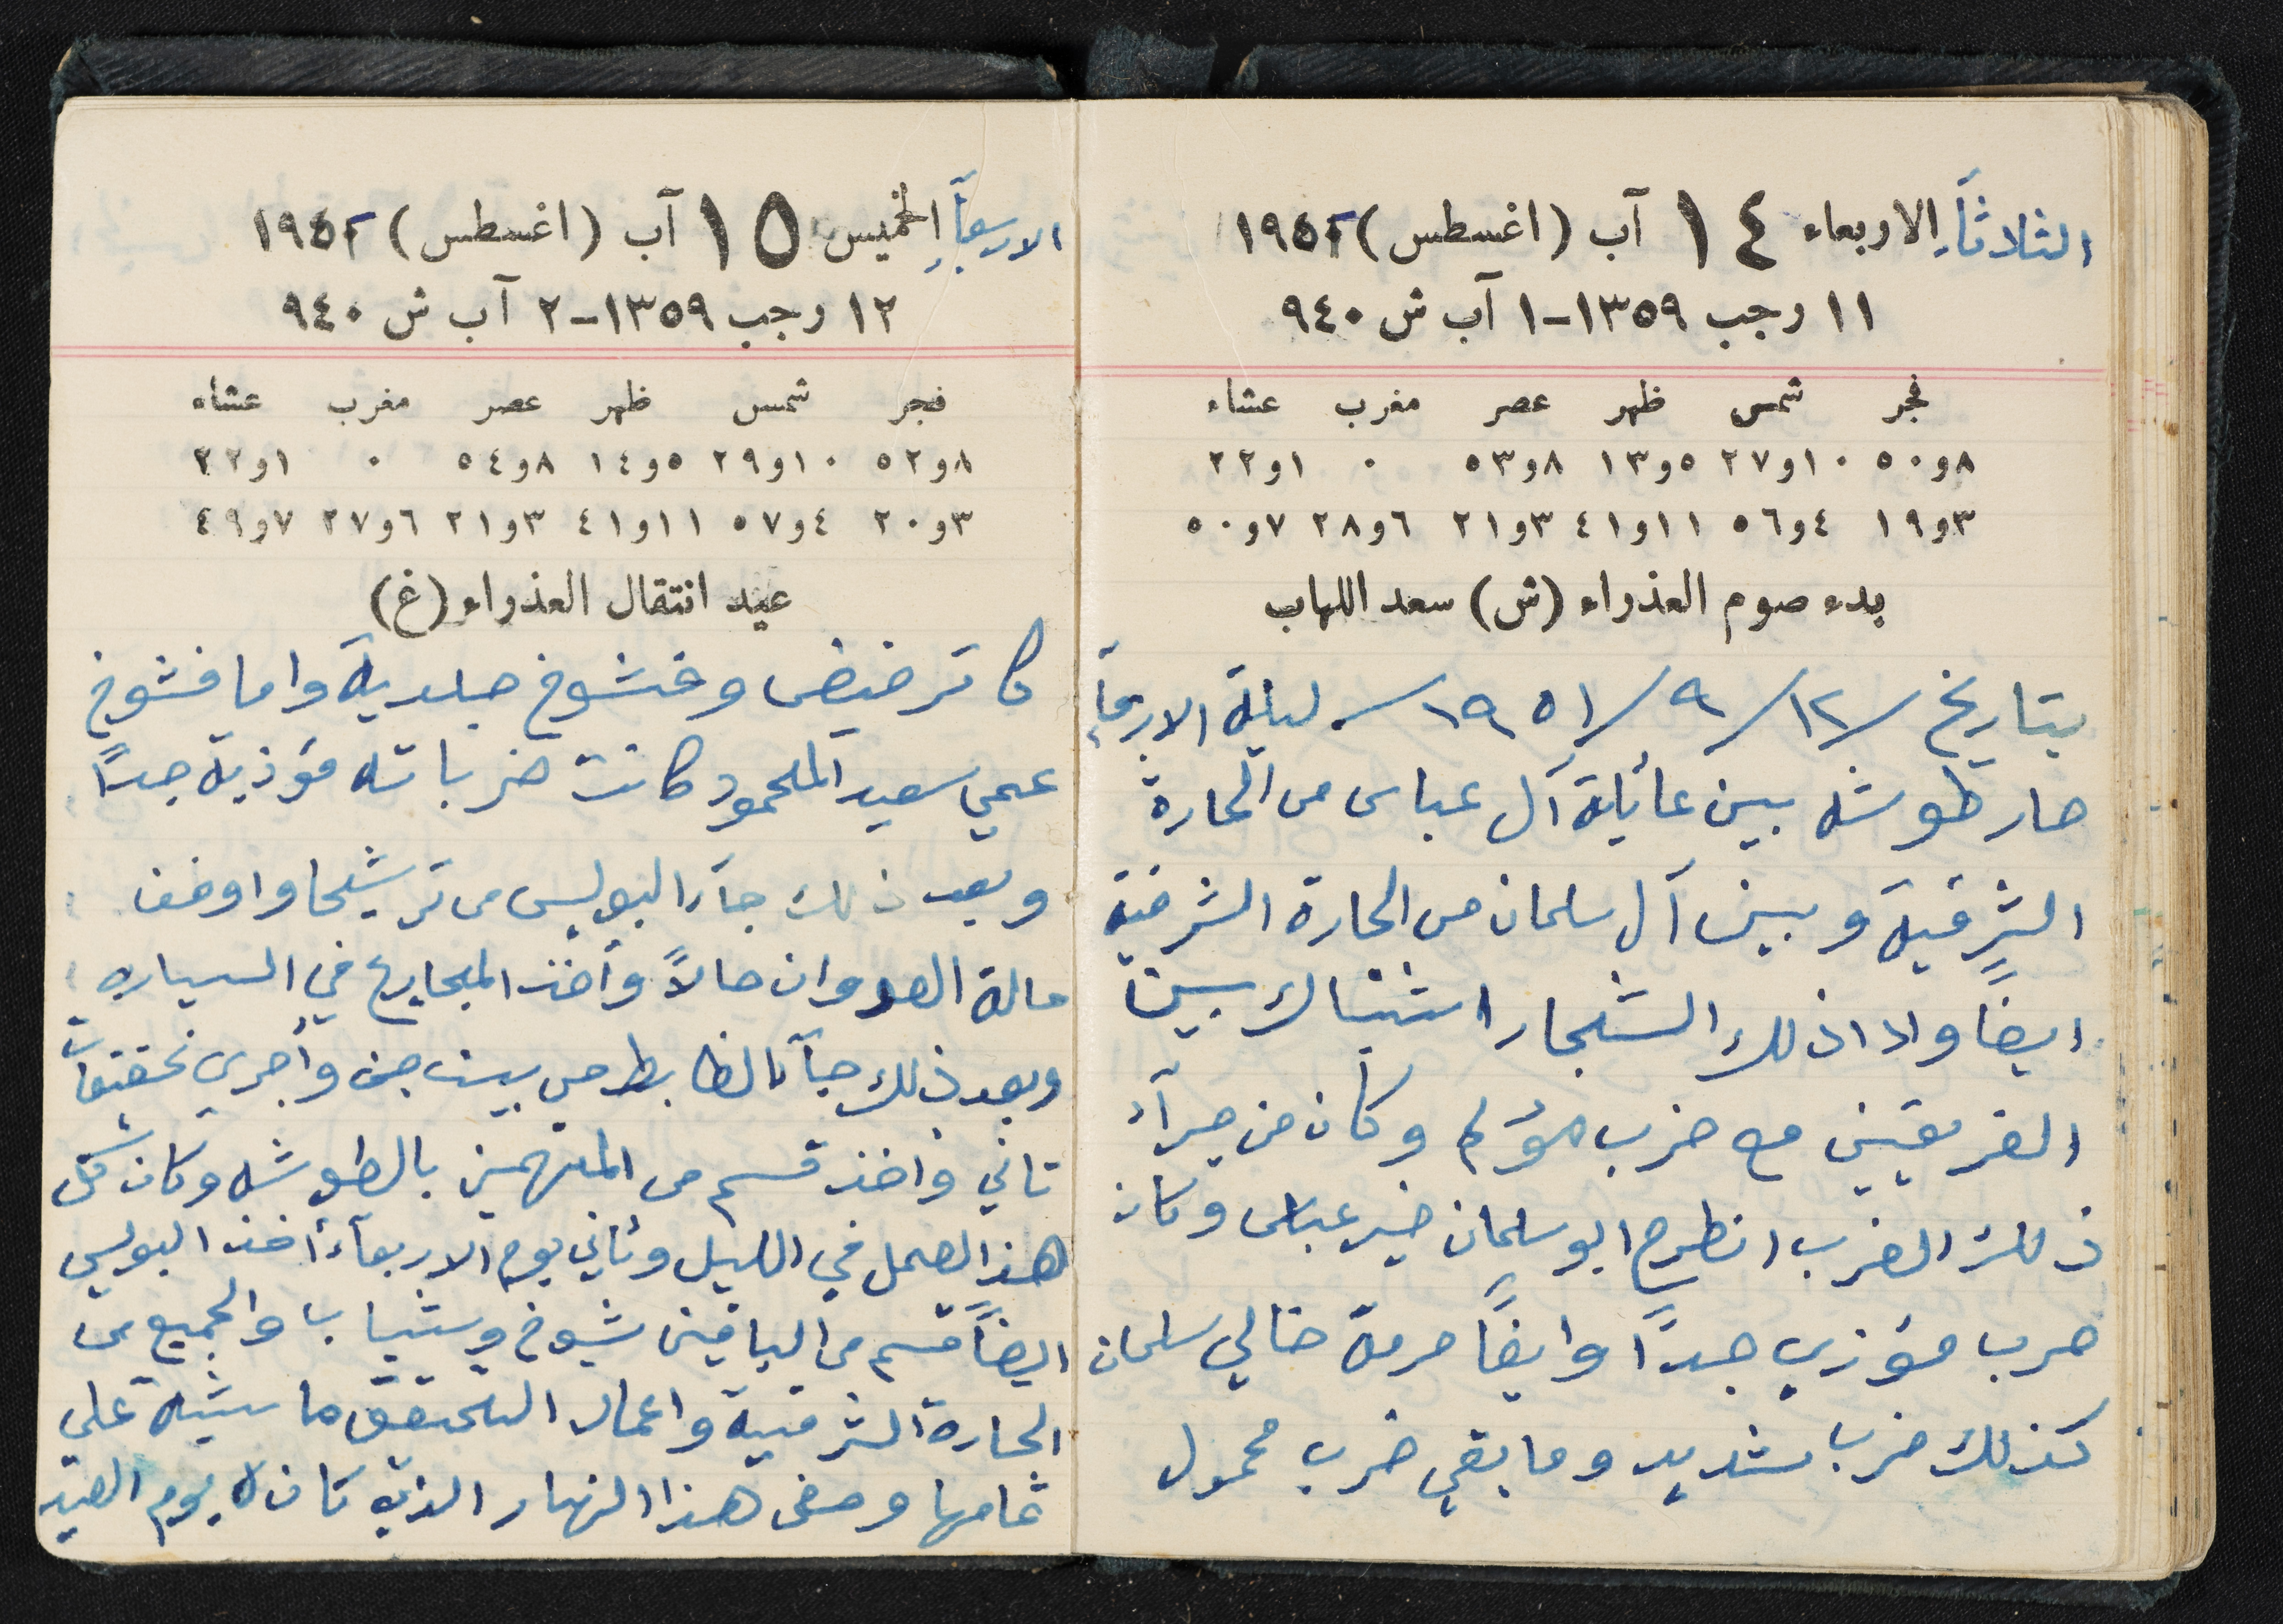 الثلاثآء الاربعاء ١٤ آب (اغسطس) ١٩٥٢
١١ رجب ١٣٥٩-١ آب ش ٩٤٠
فجر شمس ظهر عصر مغرب عشاء
٨و٥٠ ١٠و٢٧ ٥و١٣ ٨و٥٣ ٠ ١و٢٢
٣و١٩ ٤و٥٦ ١١و٤١ ٣و٢١ ٦و٢٨ ٧و٥٠
بدء صوم العذراء (ش) سعد اللهاب
بتاريخ ١٢/٩/١٩٥١/. ليلة الاربعآء
صار طوشه بين عائلة آل عباس من الحارة
الشرقية وبين آل سلمان من الحارة الشرقية
ايضاً واذا ذلك الشجار اشتباك بين
الفريقين مع ضرب مؤلم وكان من جرآء
ذلك الضرب انطرح ابو سلمان خير عباس وكان
ضرب مؤزي جداً وايضاً حرمة خالي سلمان
كذلك ضرب شديد وما بقي ضرب محمول
الاربعآء الخميس ١٥ آب (اغسطس) ١٩٥٢
١٢ رجب ١٣٥٩-٢ آب ش ٩٤٠
فجر شمس ظهر عصر مغرب عشاء
٨و٥٢ ١٠و٢٩ ٥و١٤ ٨و٥٤ ٠ ١و٢٢
٣و٢٠ ٤و٥٧ ١١و٤١ ٣و٢١ ٦و٢٧ ٧و٤٩
عيد انتقال العذراء (غ)
وفشوخ جلدية واما فشوخ
عمي سعيد المحمود كانت ضرباته مؤذية جداً
وبعد ذلك جآء البوليس من ترشيحا واوقف
حالة العدوان حالاً وأخذ المجاريح في السياره
وبعد ذلك جآء الظابط من بيت جن وأجرى تحقيقات
تاني وأخذ قسم من المتهمين بالطوشه وكان كل
هذا العمل في الليل وثاني يوم الاربعآء أخذ البوليس
ايضاً قسم من الباقين شيوخ وشباب والجميع من
الحارة الشرقية واعمال التحقيق ماشية على
تمامها ومضى هذا النهار الذي كان له يوم العيد